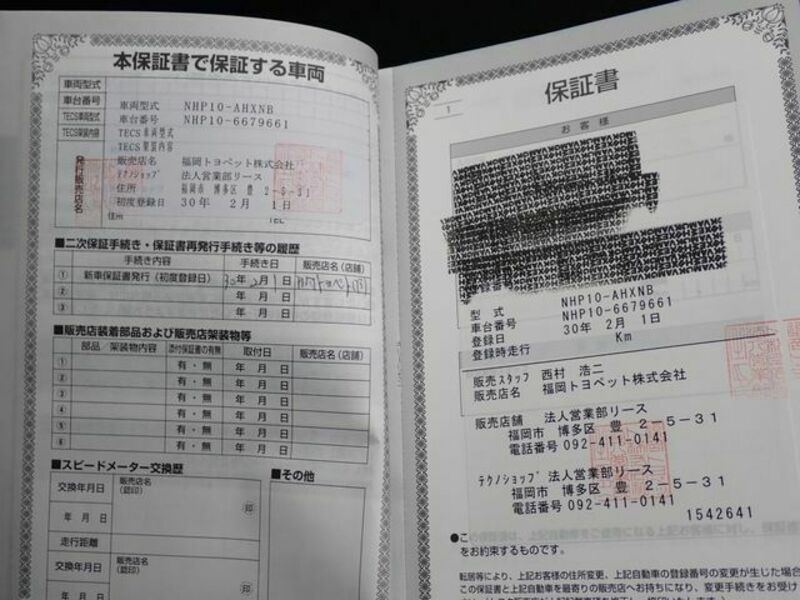 本保証書で保証する車両
車両型式
車台番号
TECS車両型式
TECS架装内容
車両型式 NHP10-AHXNB
車台番号 NHP10-6679661
TECS車両型式
TECS架装内容
発行販売店名
販売店名 福岡トヨペット株式会社
テクノショップ 法人営業部リース
住所 福岡市 博多区 豊 2-5-31
初度登録日 30年 2月 1日
住m TEL
■二次保証手続き・保証書再発行手続き等の履歴
手続き内容 手続き日 販売店名(店舗)
① 新車保証書発行(初度登録日) 30年 2月 1日
② 年 月 日
③ 年 月 日
■販売店装着部品および販売店架装物等
部品/架装物内容 添付保証書の有無 取付日 販売店名(店舗)
① 有・無 年 月 日
② 有・無 年 月 日
③ 有・無 年 月 日
④ 有・無 年 月 日
⑤ 有・無 年 月 日
⑥ 有・無 年 月 日
■スピードメーター交換歴
交換年月日 販売店名(認印)
年 月 日 印
走行距離
交換年月日 販売店名(認印)
年 月 日 印
■その他
1
保証書
お客様
型式 NHP10-AHXNB
車台番号 NHP10-6679661
登録日 30年 2月 1日
登録時走行 Km
販売スタッフ 西村 浩二
販売店名 福岡トヨペット株式会社
販売店舗 法人営業部リース
福岡市 博多区 豊 2-5-31
電話番号 092-411-0141
テクノショップ 法人営業部リース
福岡市 博多区 豊 2-5-31
電話番号 092-411-0141
1542641
●この保証書は、上記自動車をご使用になる上記お客様に対し、保証書
をお約束するものです。
転居等により、上記お客様の住所変更、上記自動車の登録番号の変更が生じた場合
この保証書と上記自動車を最寄りの販売店へお持ちになり、変更手続きをお受け